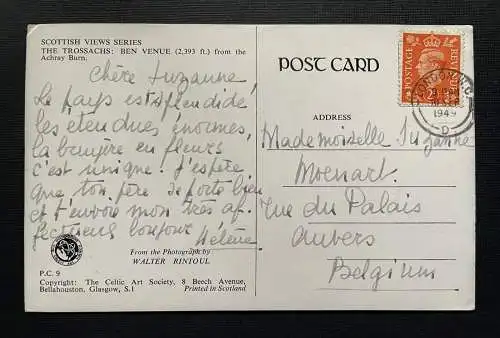 SCOTTISH VIEWS SERIES
THE TROSSACHS: BEN VENUE (2,393 ft.) from the
Achray Burn.
Chère Suzanne
Le pays est splendide
les étendues énormes,
la bruyère en fleurs
c'est unique. J'espère
que ton père se porte bien
et t'envoie mon très af-
fectueux bonjour
Hélène
From the Photograph by
WALTER RINTOUL
P.C. 9
Copyright: The Celtic Art Society, 8 Beech Avenue,
Bellahouston, Glasgow, S.1 Printed in Scotland
POST CARD
ADDRESS
Mademoiselle Suzanne
Moenart
Rue du Palais
Anvers
Belgium
POSTAGE
REVENUE
LONDON
1949
D